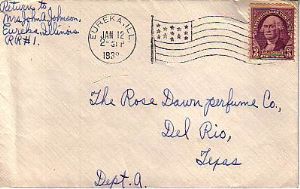 Return to
Mrs John A Johnson,
Eureka, Illinois.
RR#1.
EUREKA, ILL.
JAN 12
PM
193
3
3
The Rose Dawn perfume Co.,
Del Rio,
Texas
Dept. A.